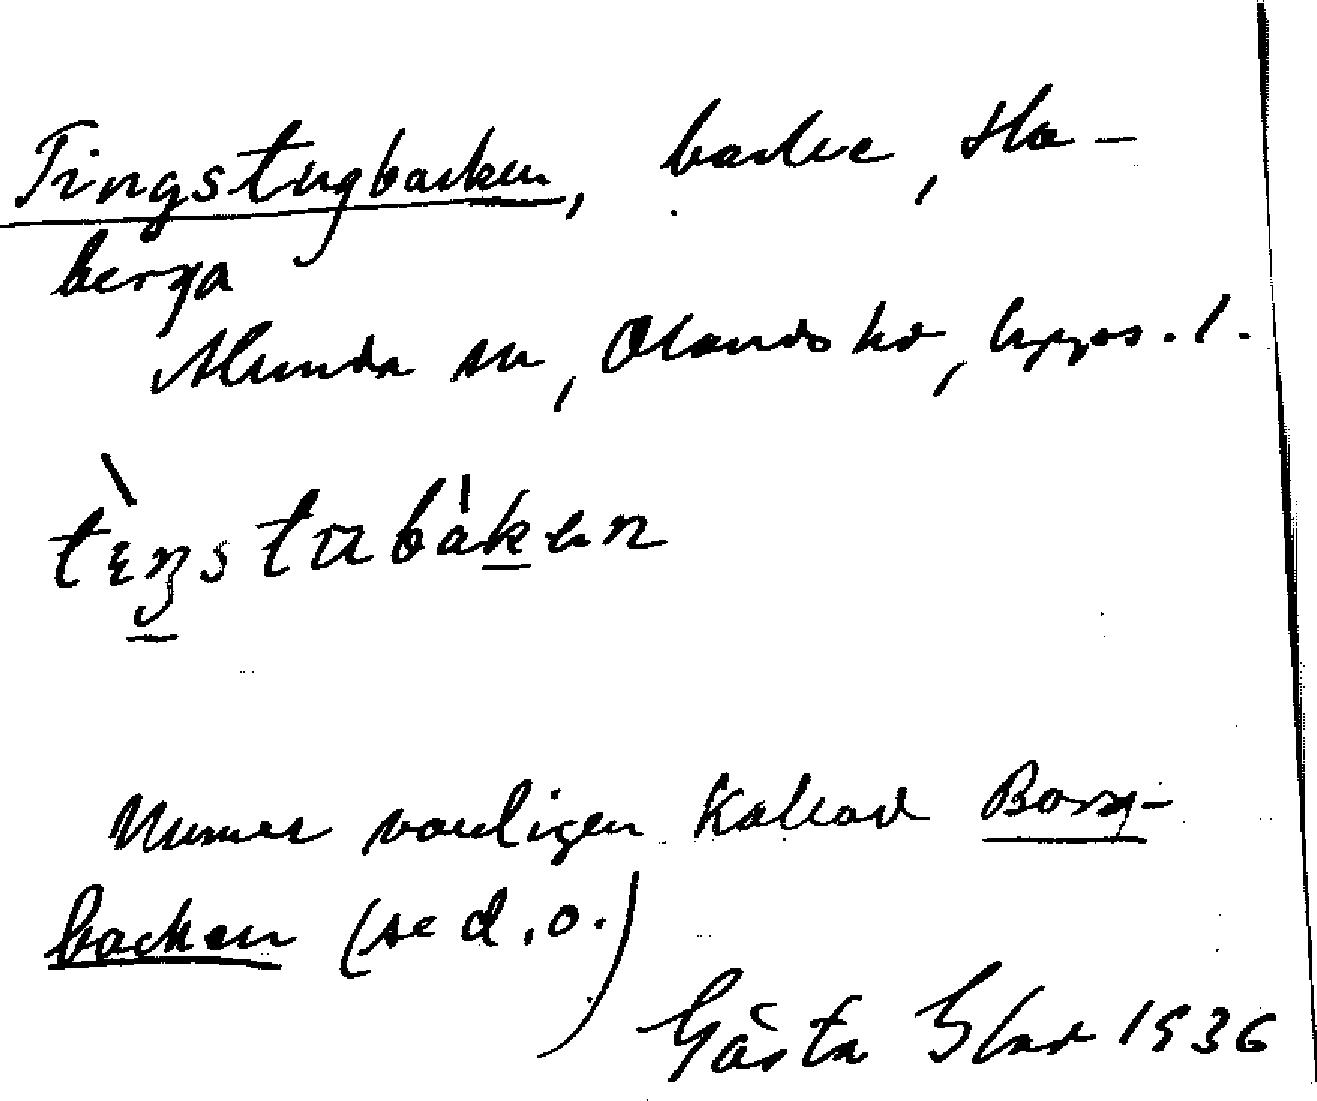 Tingstugbacken, backe, Ha-
berga
Alunda sn, Olands hd, Upps. l.
Numer vanligen kallad Borg-
backen (se d.o.)
Gösta 1936